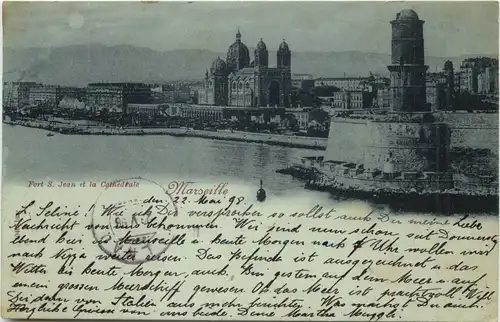 Fort S. Jean et la Cathédrale
Marseille
den 22. Mai 98.
L. Seline! Wie ich Dir versprochen so sollst auch Du, meine Liebe
Nachricht von uns bekommen. Wir sind nun schon seit Donnerstag
Abend hier in Marseille u. heute Morgen nach 9 Uhr wollen wir
nach Nizza weiter reisen. Das Befinden ist ausgezeichnet u. das
Wetter bis heute Morgen auch. Bin gestern auf dem Meer u. auf
einem grossen Meerschiff gewesen. Oh das Meer ist prachtvoll. Will
Dir dann von Italien aus mehr berichten. Was machst Du auch.
Herzliche Grüsse von uns beide. Deine Martha